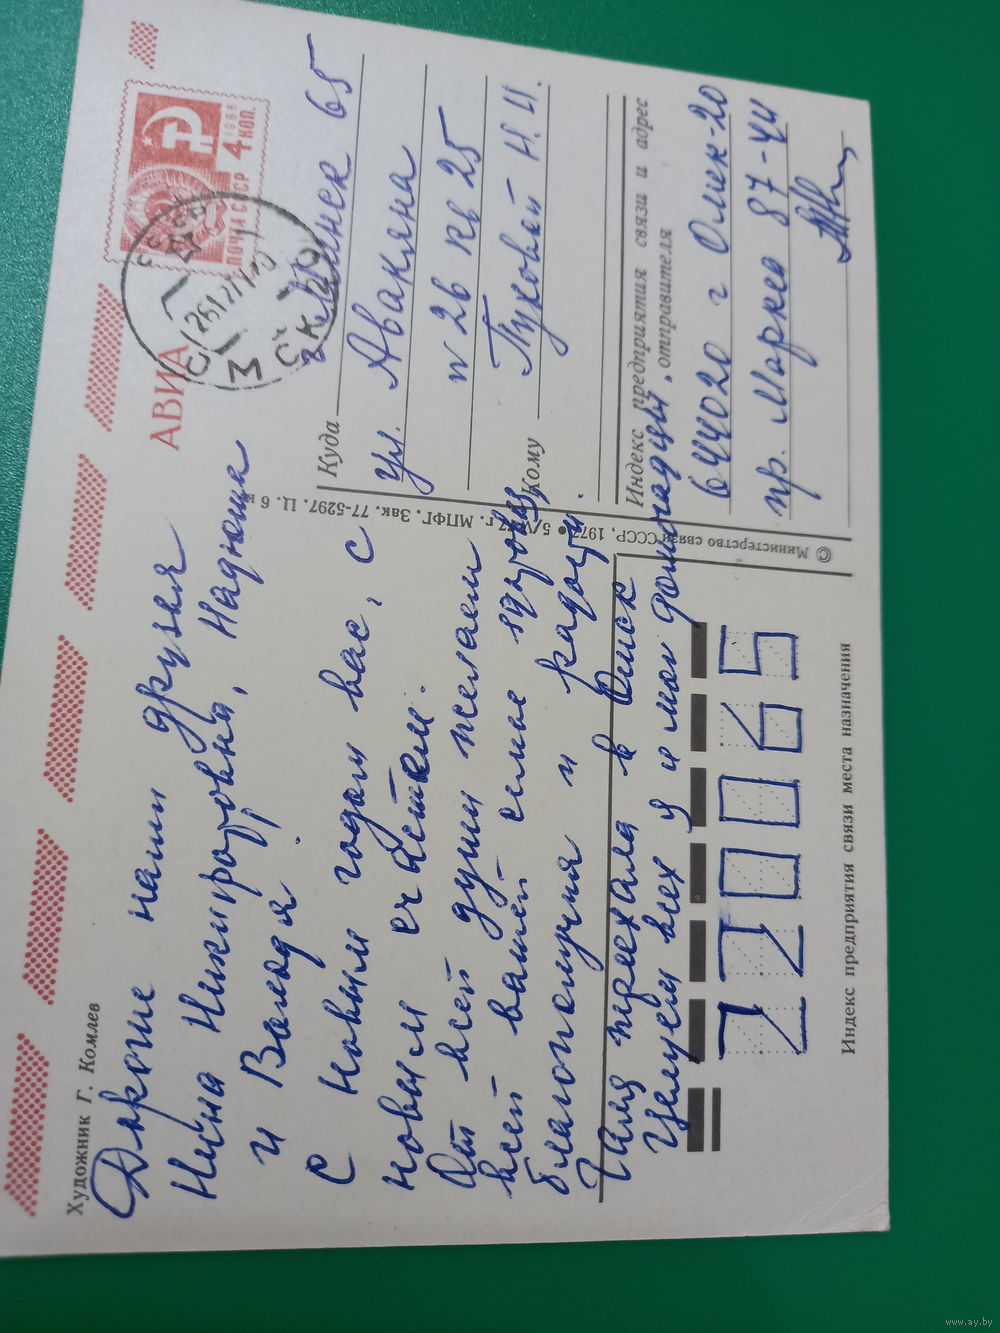 Художник Г. Комлев
АВИА
ПОЧТА СССР
4 КОП.
1966
Дорогие наши друзья
Нина Никифоровна, Надюша
и Володя!
С Новым годом вас, с
новым счастьем.
От всей души желаем
всей вашей семье здоровья,
благополучия и радости.
Галя переехала в Омск
Целуем всех
и мои домочадцы.
Куда
г. Минск 65
ул. Авакяна
№ 26 кв 25
Кому
Пуховей Н. И.
Индекс предприятия связи и адрес
отправителя
644020 г Омск-20
пр. Маркса 87-44
© Министерство связи СССР, 1977
МПФГ. Зак. 77-5297. Ц. 6 к.
220065
Индекс предприятия связи места назначения
www.ay.by